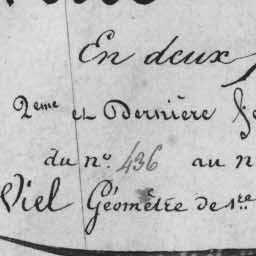 En deux
2eme et Dernière
du n° 436 au n
Viel Géomètre de 1re